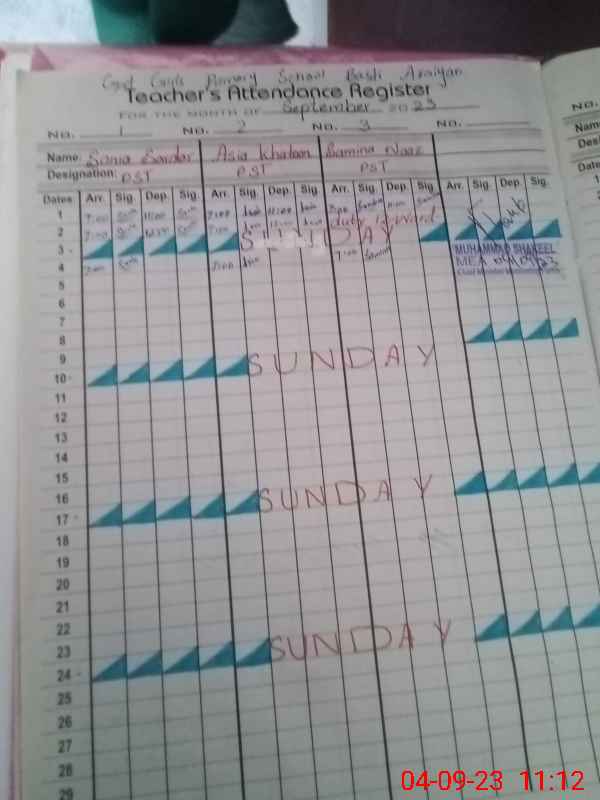 Govt Girls Primary School Basti Araiyan
Teacher's Attendance Register
FOR THE MONTH OF September 2023
No. 1 No. 2 No. 3 No.
Name: Sonia Sardar Asia Khatoon Samina Naaz
Designation: PST PST PST
Dates Arr. Sig. Dep. Sig. Arr. Sig. Dep. Sig. Arr. Sig. Dep. Sig. Arr. Sig. Dep. Sig.
1 7:00 11:00 7:00 11:00 7:00
2 7:00 7:00 duty
3 SUNDAY
MUHAMMAD SHAKEEL
4 7:00 7:00 7:00 MEA 04/09/23
5
6
7
8
9
10 SUNDAY
11
12
13
14
15
16
17 SUNDAY
18
19
20
21
22
23
24 SUNDAY
25
26
27
28
29
No.
04-09-23 11:12